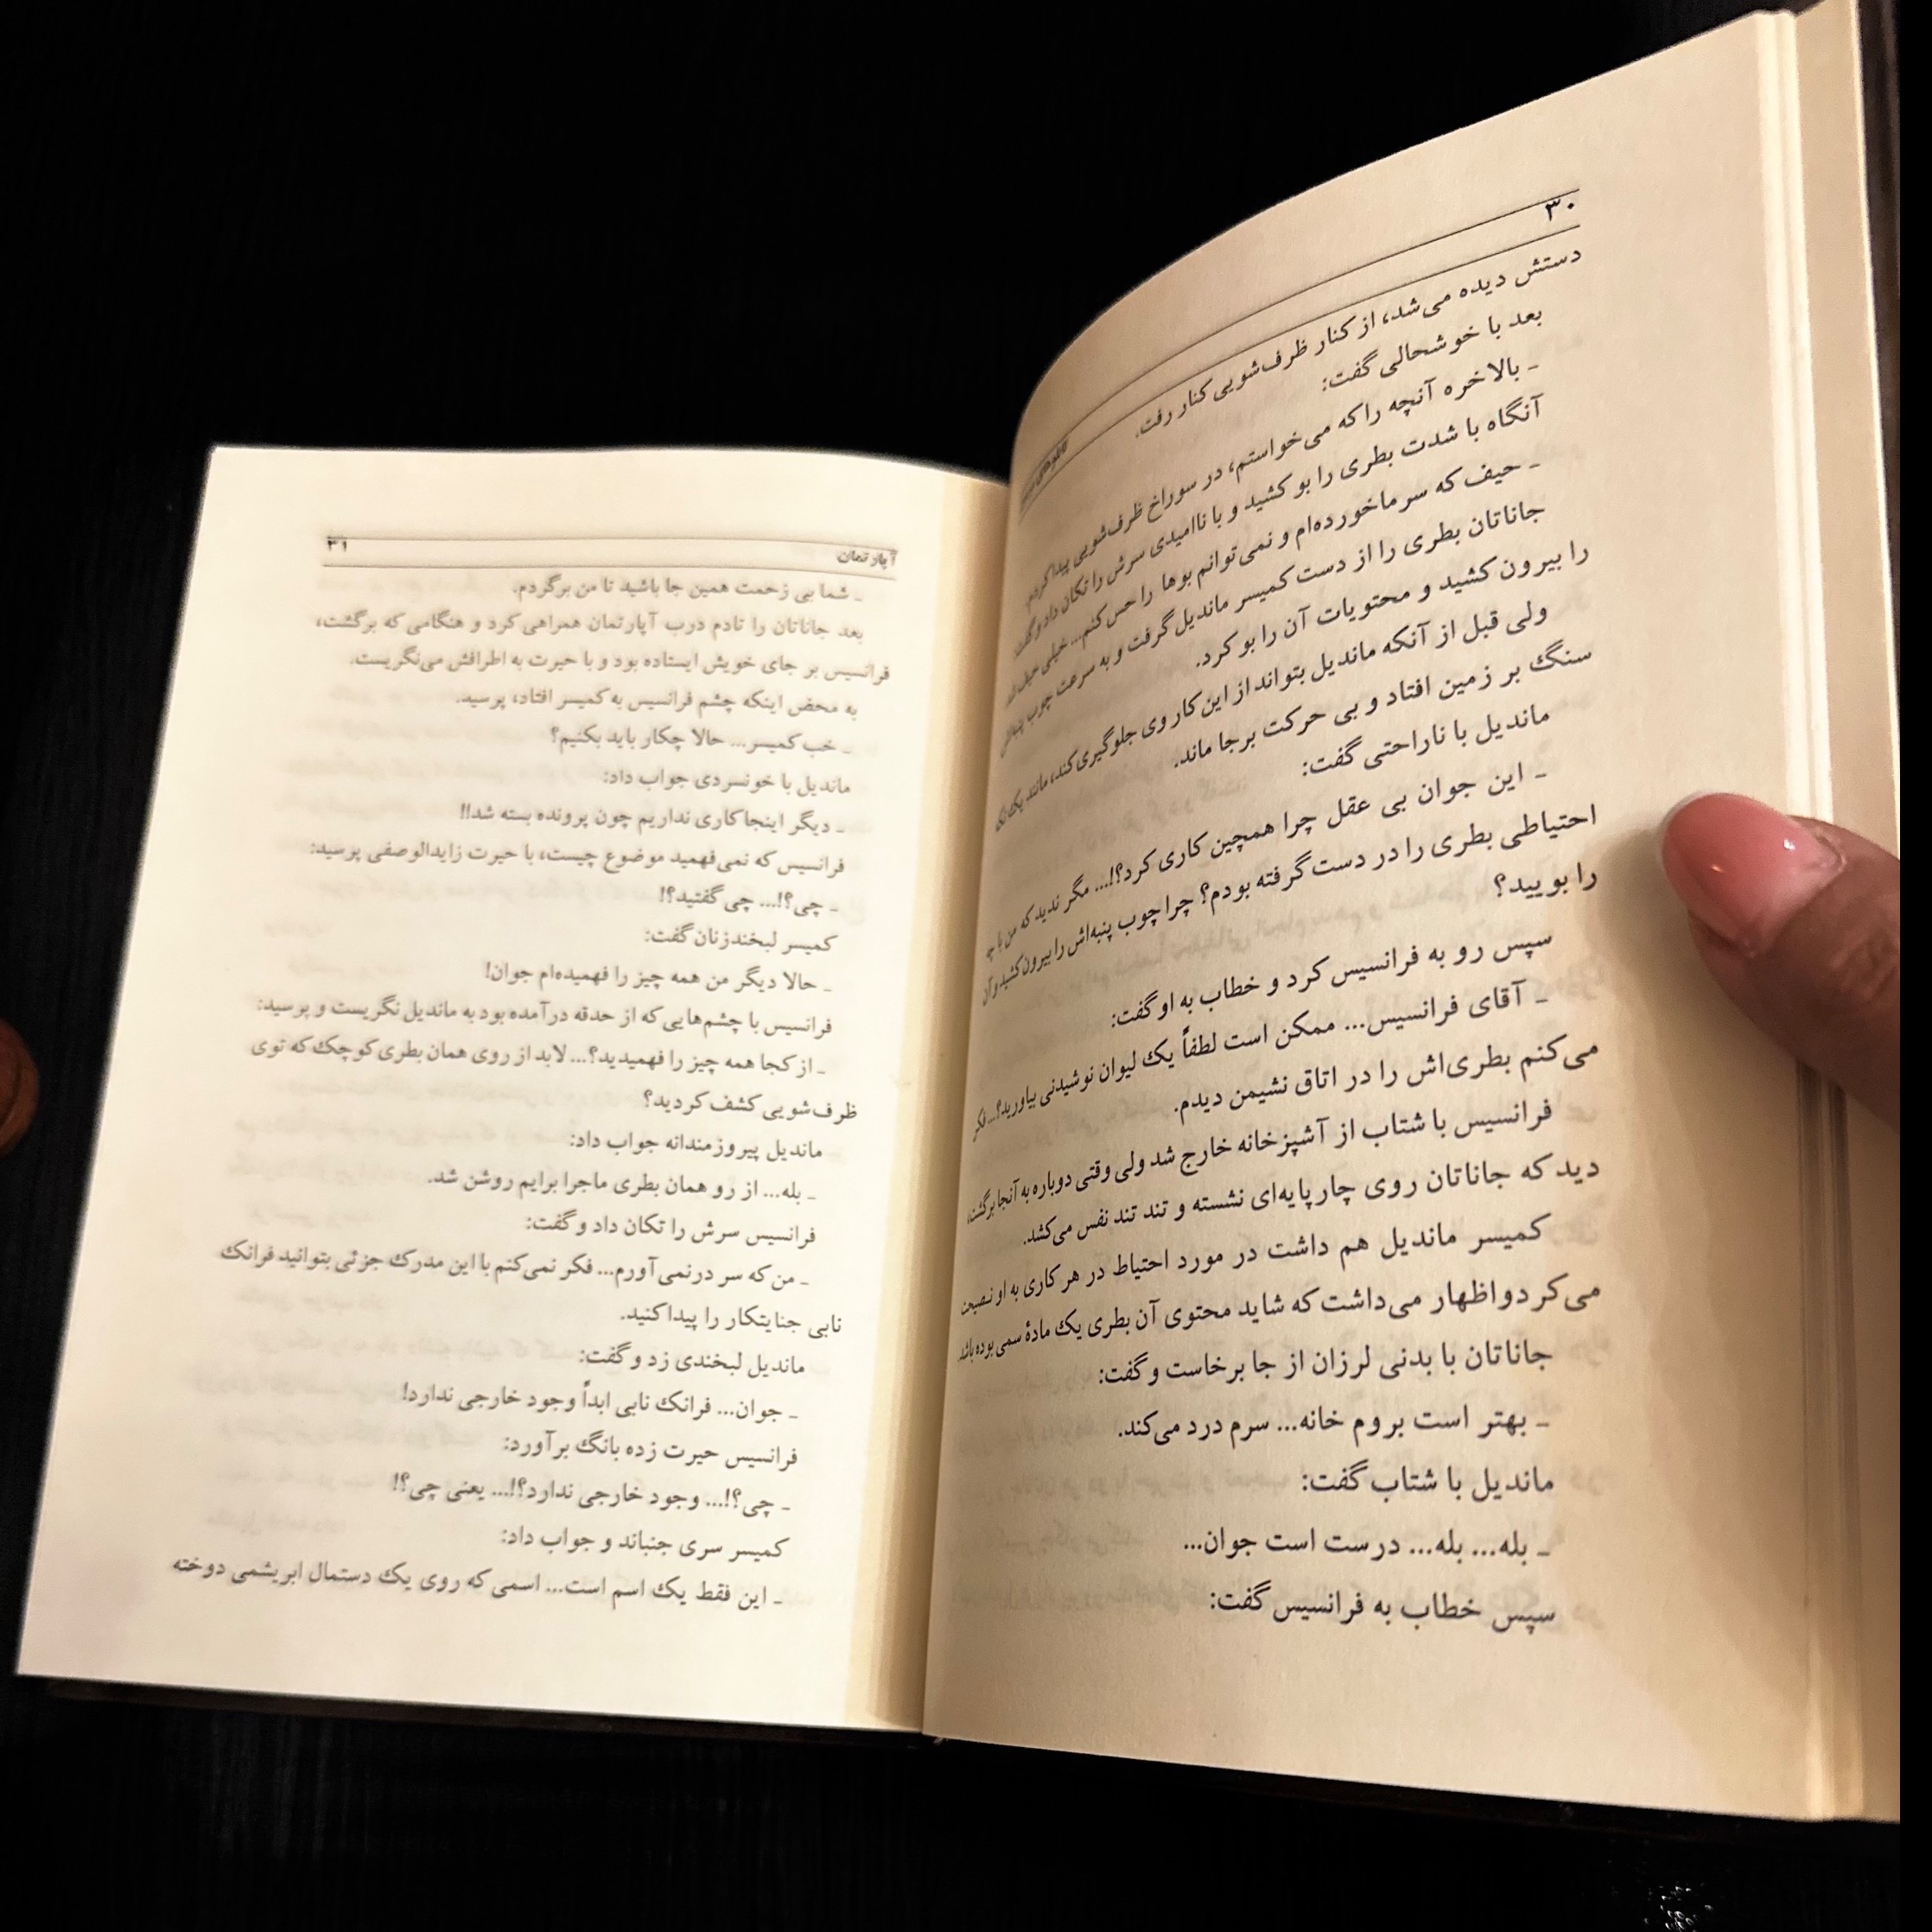 ۳۰
دستش دیده می‌شد، از کنار ظرف‌شویی کنار رفت.
بعد با خوشحالی گفت:
ـ بالاخره آنچه را که می‌خواستم، در سوراخ ظرف‌شویی پیدا کردم.
آنگاه با شدت بطری را بو کشید و با ناامیدی سرش را تکان داد و گفت:
ـ حیف که سرماخورده‌ام و نمی‌توانم بوها را حس کنم... خیلی حیف شد.
جاناتان بطری را از دست کمیسر ماندیل گرفت و به سرعت چوب پنبه‌اش
را بیرون کشید و محتویات آن را بو کرد.
ولی قبل از آنکه ماندیل بتواند از این کار وی جلوگیری کند، مانند یک تکه
سنگ بر زمین افتاد و بی حرکت برجا ماند.
ماندیل با ناراحتی گفت:
ـ این جوان بی عقل چرا همچین کاری کرد؟!... مگر ندید که من با چه
احتیاطی بطری را در دست گرفته بودم؟ چرا چوب پنبه‌اش را بیرون کشید و آن
را بویید؟
سپس رو به فرانسیس کرد و خطاب به او گفت:
ـ آقای فرانسیس... ممکن است لطفاً یک لیوان نوشیدنی بیاورید؟... فکر
می‌کنم بطری‌اش را در اتاق نشیمن دیدم.
فرانسیس با شتاب از آشپزخانه خارج شد ولی وقتی دوباره به آنجا برگشت،
دید که جاناتان روی چارپایه‌ای نشسته و تند تند نفس می‌کشد.
کمیسر ماندیل هم داشت در مورد احتیاط در هر کاری به او نصیحت
می‌کرد و اظهار می‌داشت که شاید محتوی آن بطری یک مادهٔ سمی بوده باشد.
جاناتان با بدنی لرزان از جا برخاست و گفت:
ـ بهتر است بروم خانه... سرم درد می‌کند.
ماندیل با شتاب گفت:
ـ بله... بله... درست است جوان...
سپس خطاب به فرانسیس گفت:
آپارتمان ۳۱
ـ شما بی زحمت همین جا باشید تا من برگردم.
بعد جاناتان را تادم درب آپارتمان همراهی کرد و هنگامی که برگشت،
فرانسیس بر جای خویش ایستاده بود و با حیرت به اطرافش می‌نگریست.
به محض اینکه چشم فرانسیس به کمیسر افتاد، پرسید.
ـ خب کمیسر... حالا چکار باید بکنیم؟
ماندیل با خونسردی جواب داد:
ـ دیگر اینجا کاری نداریم چون پرونده بسته شد!!
فرانسیس که نمی‌فهمید موضوع چیست، با حیرت زایدالوصفی پرسید:
ـ چی؟!... چی گفتید؟!
کمیسر لبخندزنان گفت:
ـ حالا دیگر من همه چیز را فهمیده‌ام جوان!
فرانسیس با چشم‌هایی که از حدقه درآمده بود به ماندیل نگریست و پرسید:
ـ از کجا همه چیز را فهمیدید؟... لابد از روی همان بطری کوچک که توی
ظرف‌شویی کشف کردید؟
ماندیل پیروزمندانه جواب داد:
ـ بله... از رو همان بطری ماجرا برایم روشن شد.
فرانسیس سرش را تکان داد و گفت:
ـ من که سر درنمی‌آورم... فکر نمی‌کنم با این مدرک جزئی بتوانید فرانک
نابی جنایتکار را پیدا کنید.
ماندیل لبخندی زد و گفت:
ـ جوان... فرانک نابی ابداً وجود خارجی ندارد!
فرانسیس حیرت زده بانگ برآورد:
ـ چی؟!... وجود خارجی ندارد؟!... یعنی چی؟!
کمیسر سری جنباند و جواب داد:
ـ این فقط یک اسم است... اسمی که روی یک دستمال ابریشمی دوخته